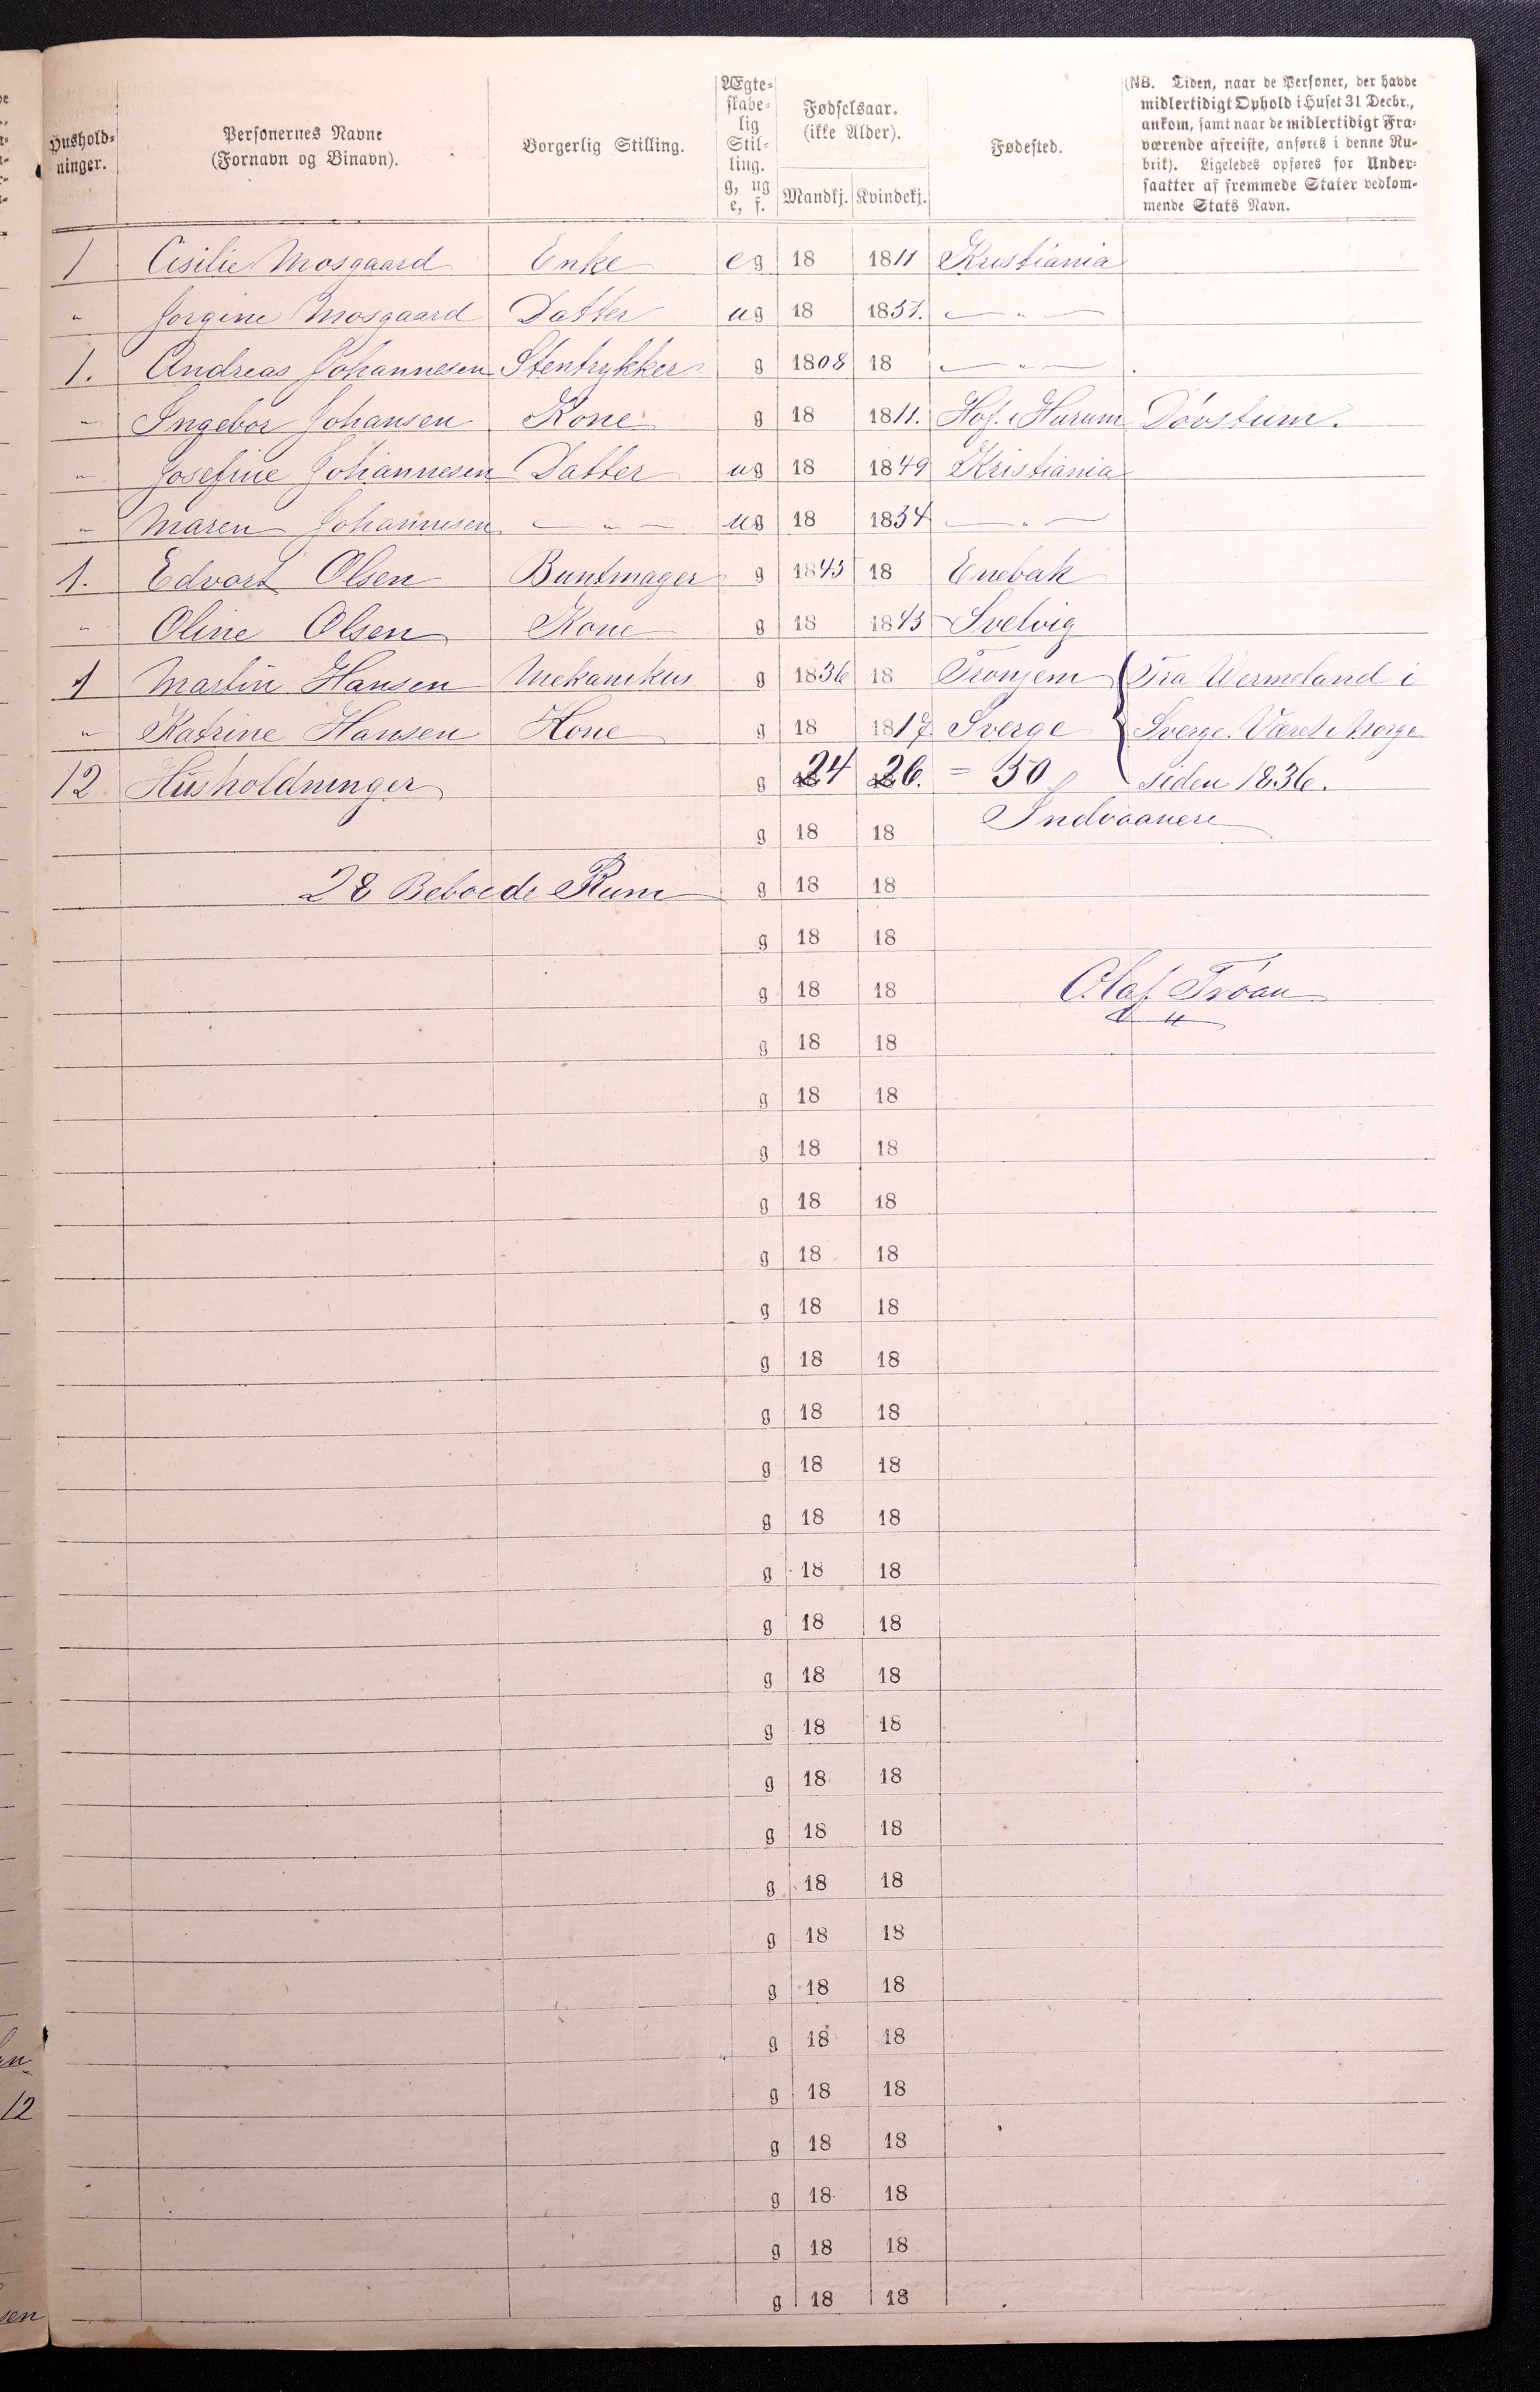 Hushold-ninger. | Personernes Navne (Fornavn og Binavn). | Borgerlig Stilling. | Ægte-skabe-lig Stil-ling. g, ug e, f. | Fødselsaar. (ikke Alder). Mandkj. | Kvindekj. | Fødested. | (NB. Tiden, naar de Personer, der havde midlertidigt Ophold i Huset 31 Decbr., ankom, samt naar de midlertidigt Fra-værende afreiste, anføres i denne Ru-brik). Ligeledes opføres for Under-saatter af fremmede Stater vedkom-mende Stats Navn.
1 Cisilie Mosgaard Enke eg 18 1811 Kristiania
" Jorgine Mosgaard Datter ug 18 1851. — " —
1. Andreas Johannesen Stentrykker g 1808 18 — " —
" Ingebor Johansen Kone g 18 1811. Hof. i Hurum Døvstum.
" Josefine Johannesen Datter ug 18 1849 Kristiania
" Maren Johannesen — " — ug 18 1854 — " —
1. Edvart Olsen Buntmager g 1843 18 Enebak
" Oline Olsen Kone g 18 1843 Svelvig
1 Martin Hansen Mekanikus g 1836 18 Tronjem Fra Wermeland i
" Katrine Hansen Kone g 18 1817. Sverge Sverge. Været i Norge
12 Husholdninger g 24 26. = 50 siden 1836.
g 18 18 Indvaanere
28 Beboede Rum g 18 18
g 18 18
g 18 18 Olaf Trøan
g 18 18
g 18 18
g 18 18
g 18 18
g 18 18
g 18 18
g 18 18
g 18 18
g 18 18
g 18 18
g 18 18
g 18 18
g 18 18
g 18 18
g 18 18
g 18 18
g 18 18
g 18 18
g 18 18
g 18 18
g 18 18
g 18 18
g 18 18
g 18 18
g 18 18
12
sen